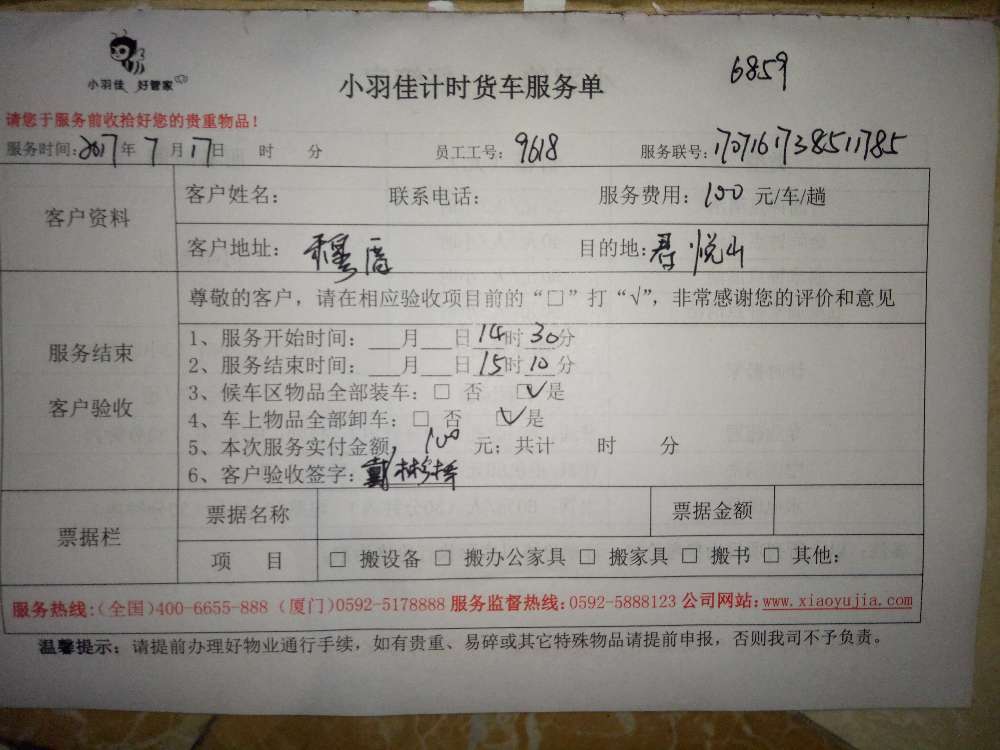 小羽佳 好管家
小羽佳计时货车服务单
6859
请您于服务前收拾好您的贵重物品！
服务时间：2017年7月17日 时 分 员工工号：9618 服务联号：1707161738511785
客户资料
客户姓名： 联系电话： 服务费用：100元/车/趟
客户地址：穆厝 目的地：君悦山
服务结束
客户验收
尊敬的客户，请在相应验收项目前的“□”打“√”，非常感谢您的评价和意见
1、服务开始时间：___月___日14时30分
2、服务结束时间：___月___日15时10分
3、候车区物品全部装车：□ 否 ☑是
4、车上物品全部卸车：□ 否 ☑是
5、本次服务实付金额，100元；共计 时 分
6、客户验收签字：戴
票据栏
票据名称 票据金额
项 目 □ 搬设备 □ 搬办公家具 □ 搬家具 □ 搬书 □ 其他：
服务热线：（全国）400-6655-888（厦门）0592-5178888 服务监督热线：0592-5888123 公司网站：www.xiaoyujia.com
温馨提示：请提前办理好物业通行手续，如有贵重、易碎或其它特殊物品请提前申报，否则我司不予负责。